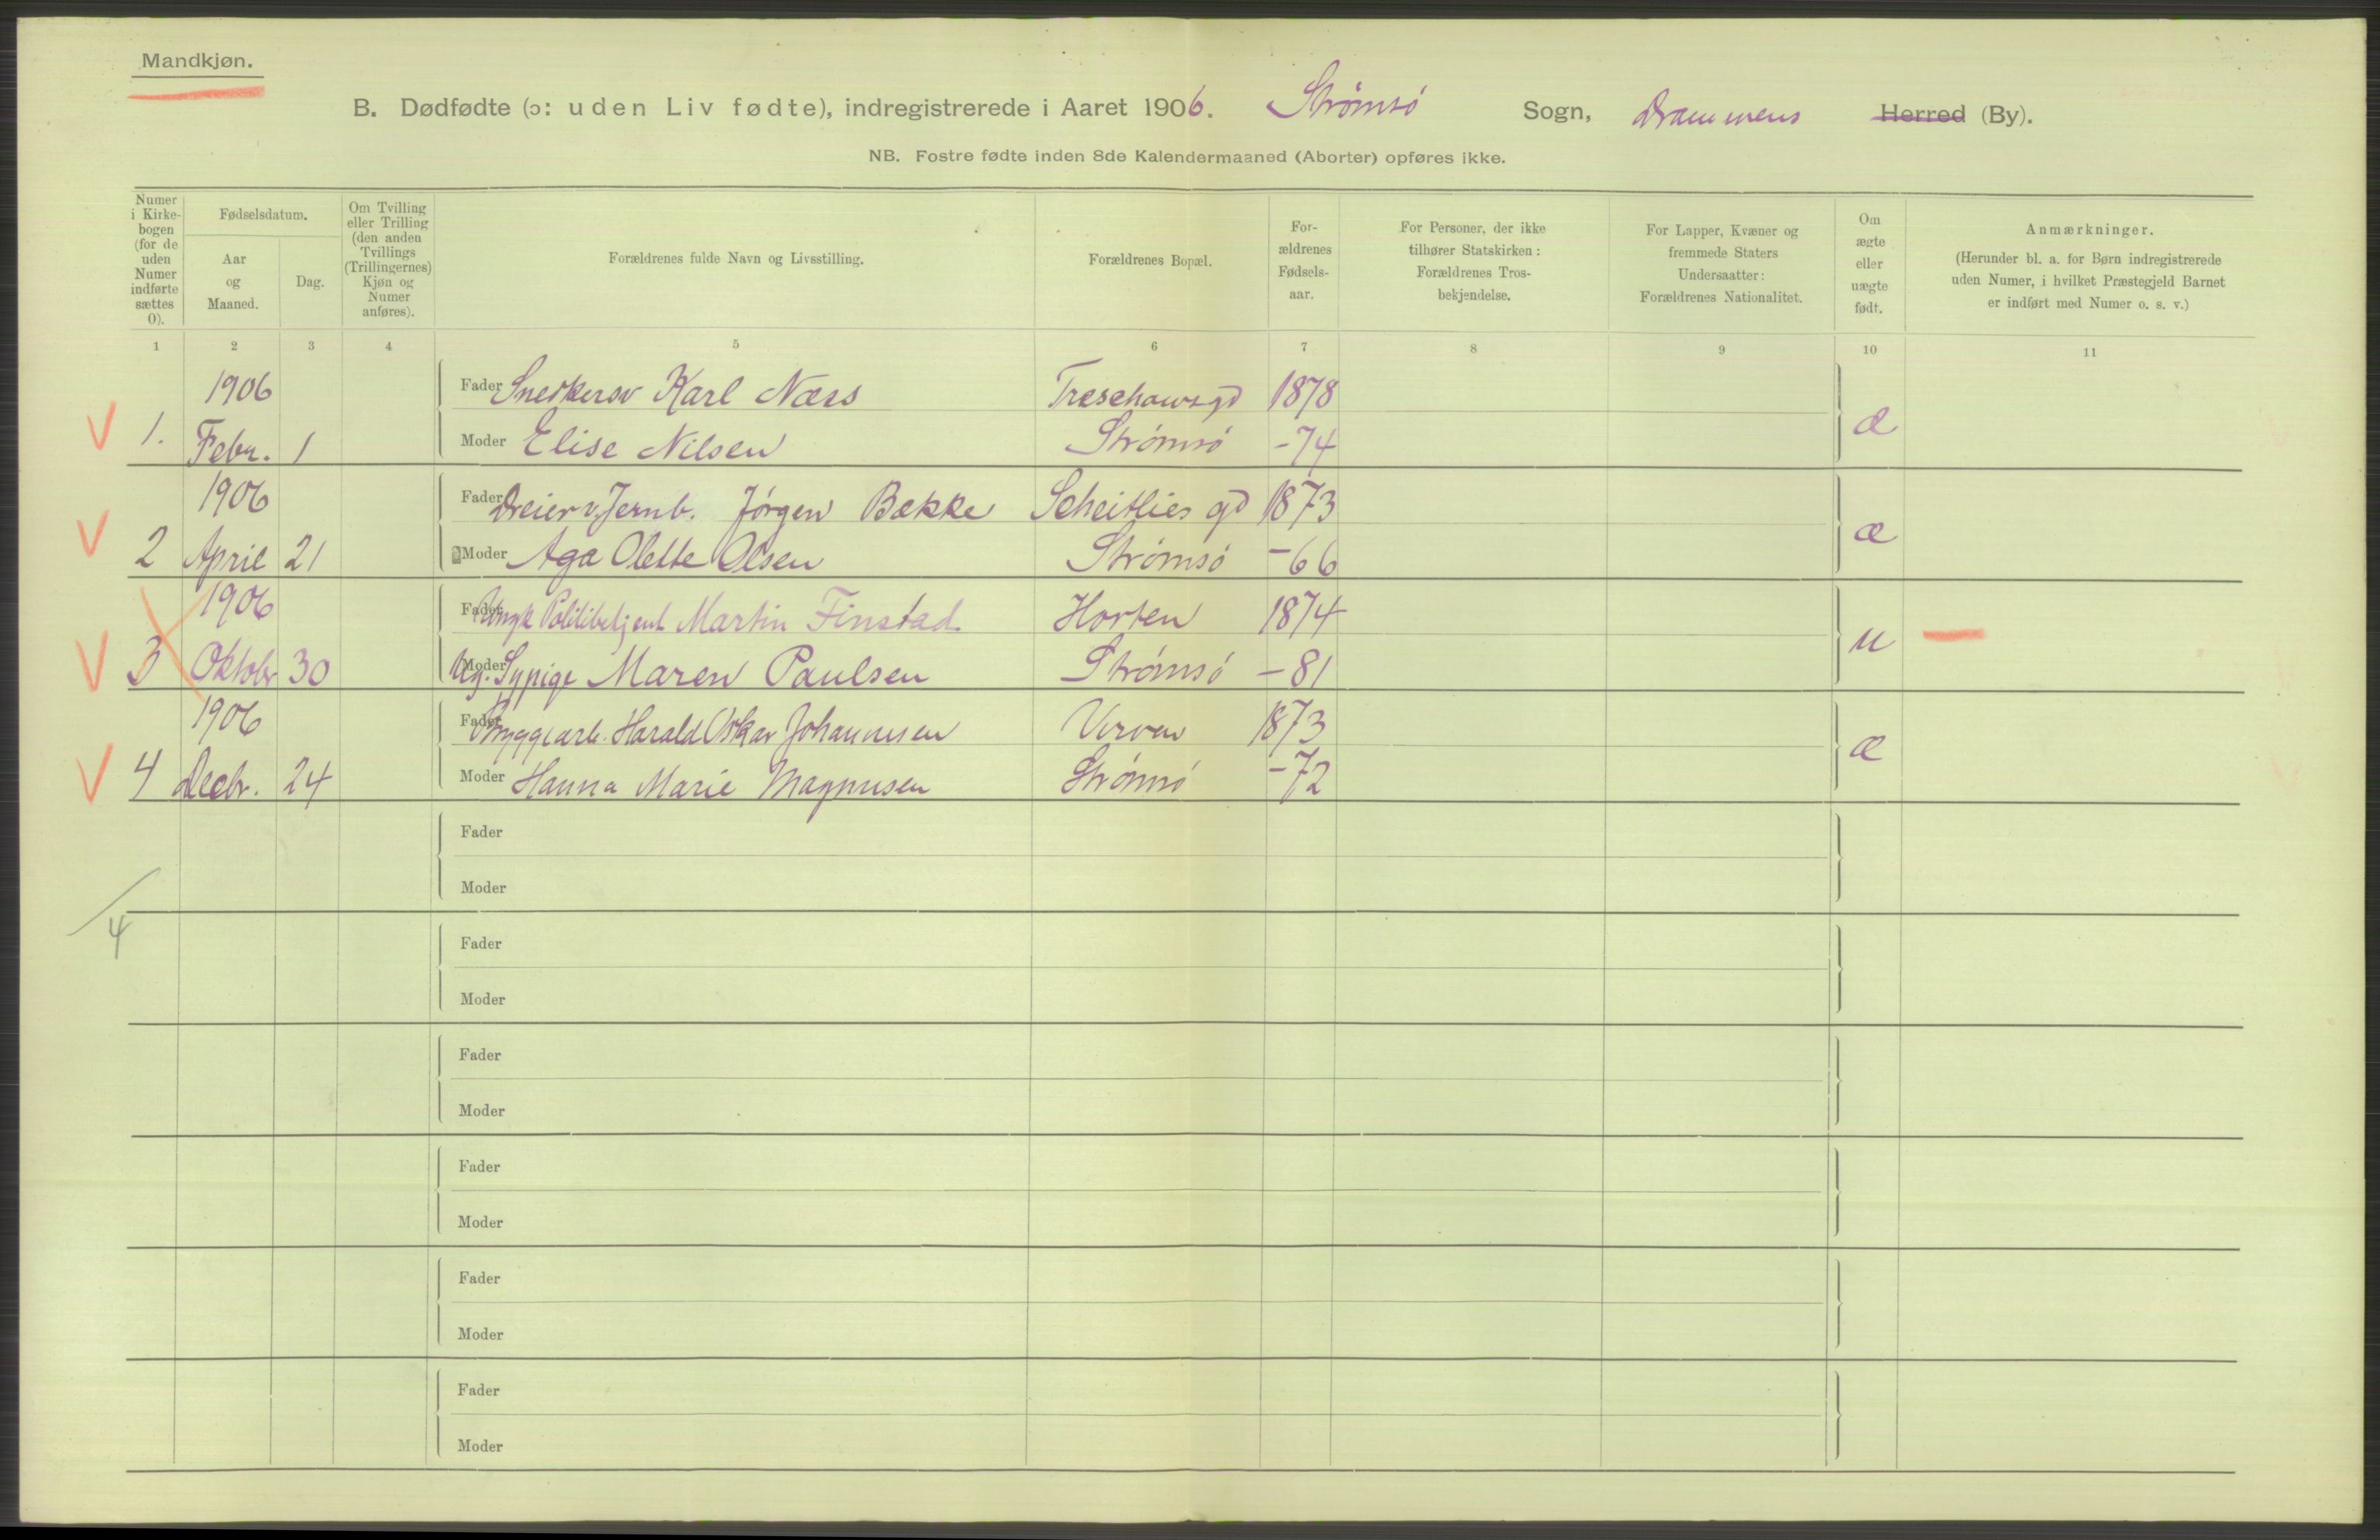 Mandkjøn.
B. Dødfødte (ɔ: uden Liv fødte), indregistrerede i Aaret 1906. Strømsø Sogn, Drammens Herred (By).
NB. Fostre fødte inden 8de Kalendermaaned (Aborter) opføres ikke.
Numer i Kirke-bogen (for de uden Numer indførte sættes 0).
Fødselsdatum.
Aar og Maaned.
Dag.
Om Tvilling eller Trilling (den anden Tvillings (Trillingernes) Kjøn og Numer anføres).
Forældrenes fulde Navn og Livsstilling.
Forældrenes Bopæl.
For-ældrenes Fødsels-aar.
For Personer, der ikke tilhører Statskirken: Forældrenes Tros-bekjendelse.
For Lapper, Kvæner og fremmede Staters Undersaatter: Forældrenes Nationalitet.
Om ægte eller uægte født.
Anmærkninger.
(Herunder bl. a. for Børn indregistrerede uden Numer, i hvilket Præstegjeld Barnet er indført med Numer o. s. v.)
1 2 3 4 5 6 7 8 9 10 11
1906 Fader Snedkersv Karl Næss Treschowsgd 1878
V 1. Febr. 1 Moder Elise Nilsen Strømsø -74 æ
1906 Fader Dreier v. Jernb. Jørgen Bække Scheitlies gd 1873
V 2 April 21 Moder Aga Olette Olsen Strømsø -66 æ
1906 Fader Politibetjent Martin Finstad Horten 1874
V 3 Oktober 30 Moder Ug. Sypige Maren Paulsen Strømsø -81 u
1906 Fader Bryggearb. Harald Oskar Johannesen Verven 1873
V 4 Decbr. 24 Moder Hanna Marie Magnusen Strømsø -72 æ
Fader
Moder
4
Fader
Moder
Fader
Moder
Fader
Moder
Fader
Moder
Fader
Moder